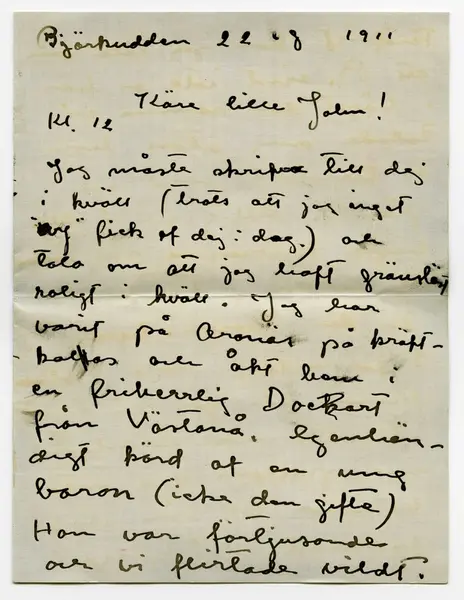 Björkudden 22 1911
Käre lille John!
Kl. 12
Jag måste skrifva till dej
i kväll (trots att jag inget
fick af dej i dag.) och
tala om att jag haft gränslöst
roligt i kväll. Jag har
varit på Aronäs på kräft-
kalas och åkt hem i
en friherrlig Dockart
från Västanå. Egenhän-
digt körd af en ung
baron (icke den gifta)
Han var förtjusande
och vi flirtade vildt.